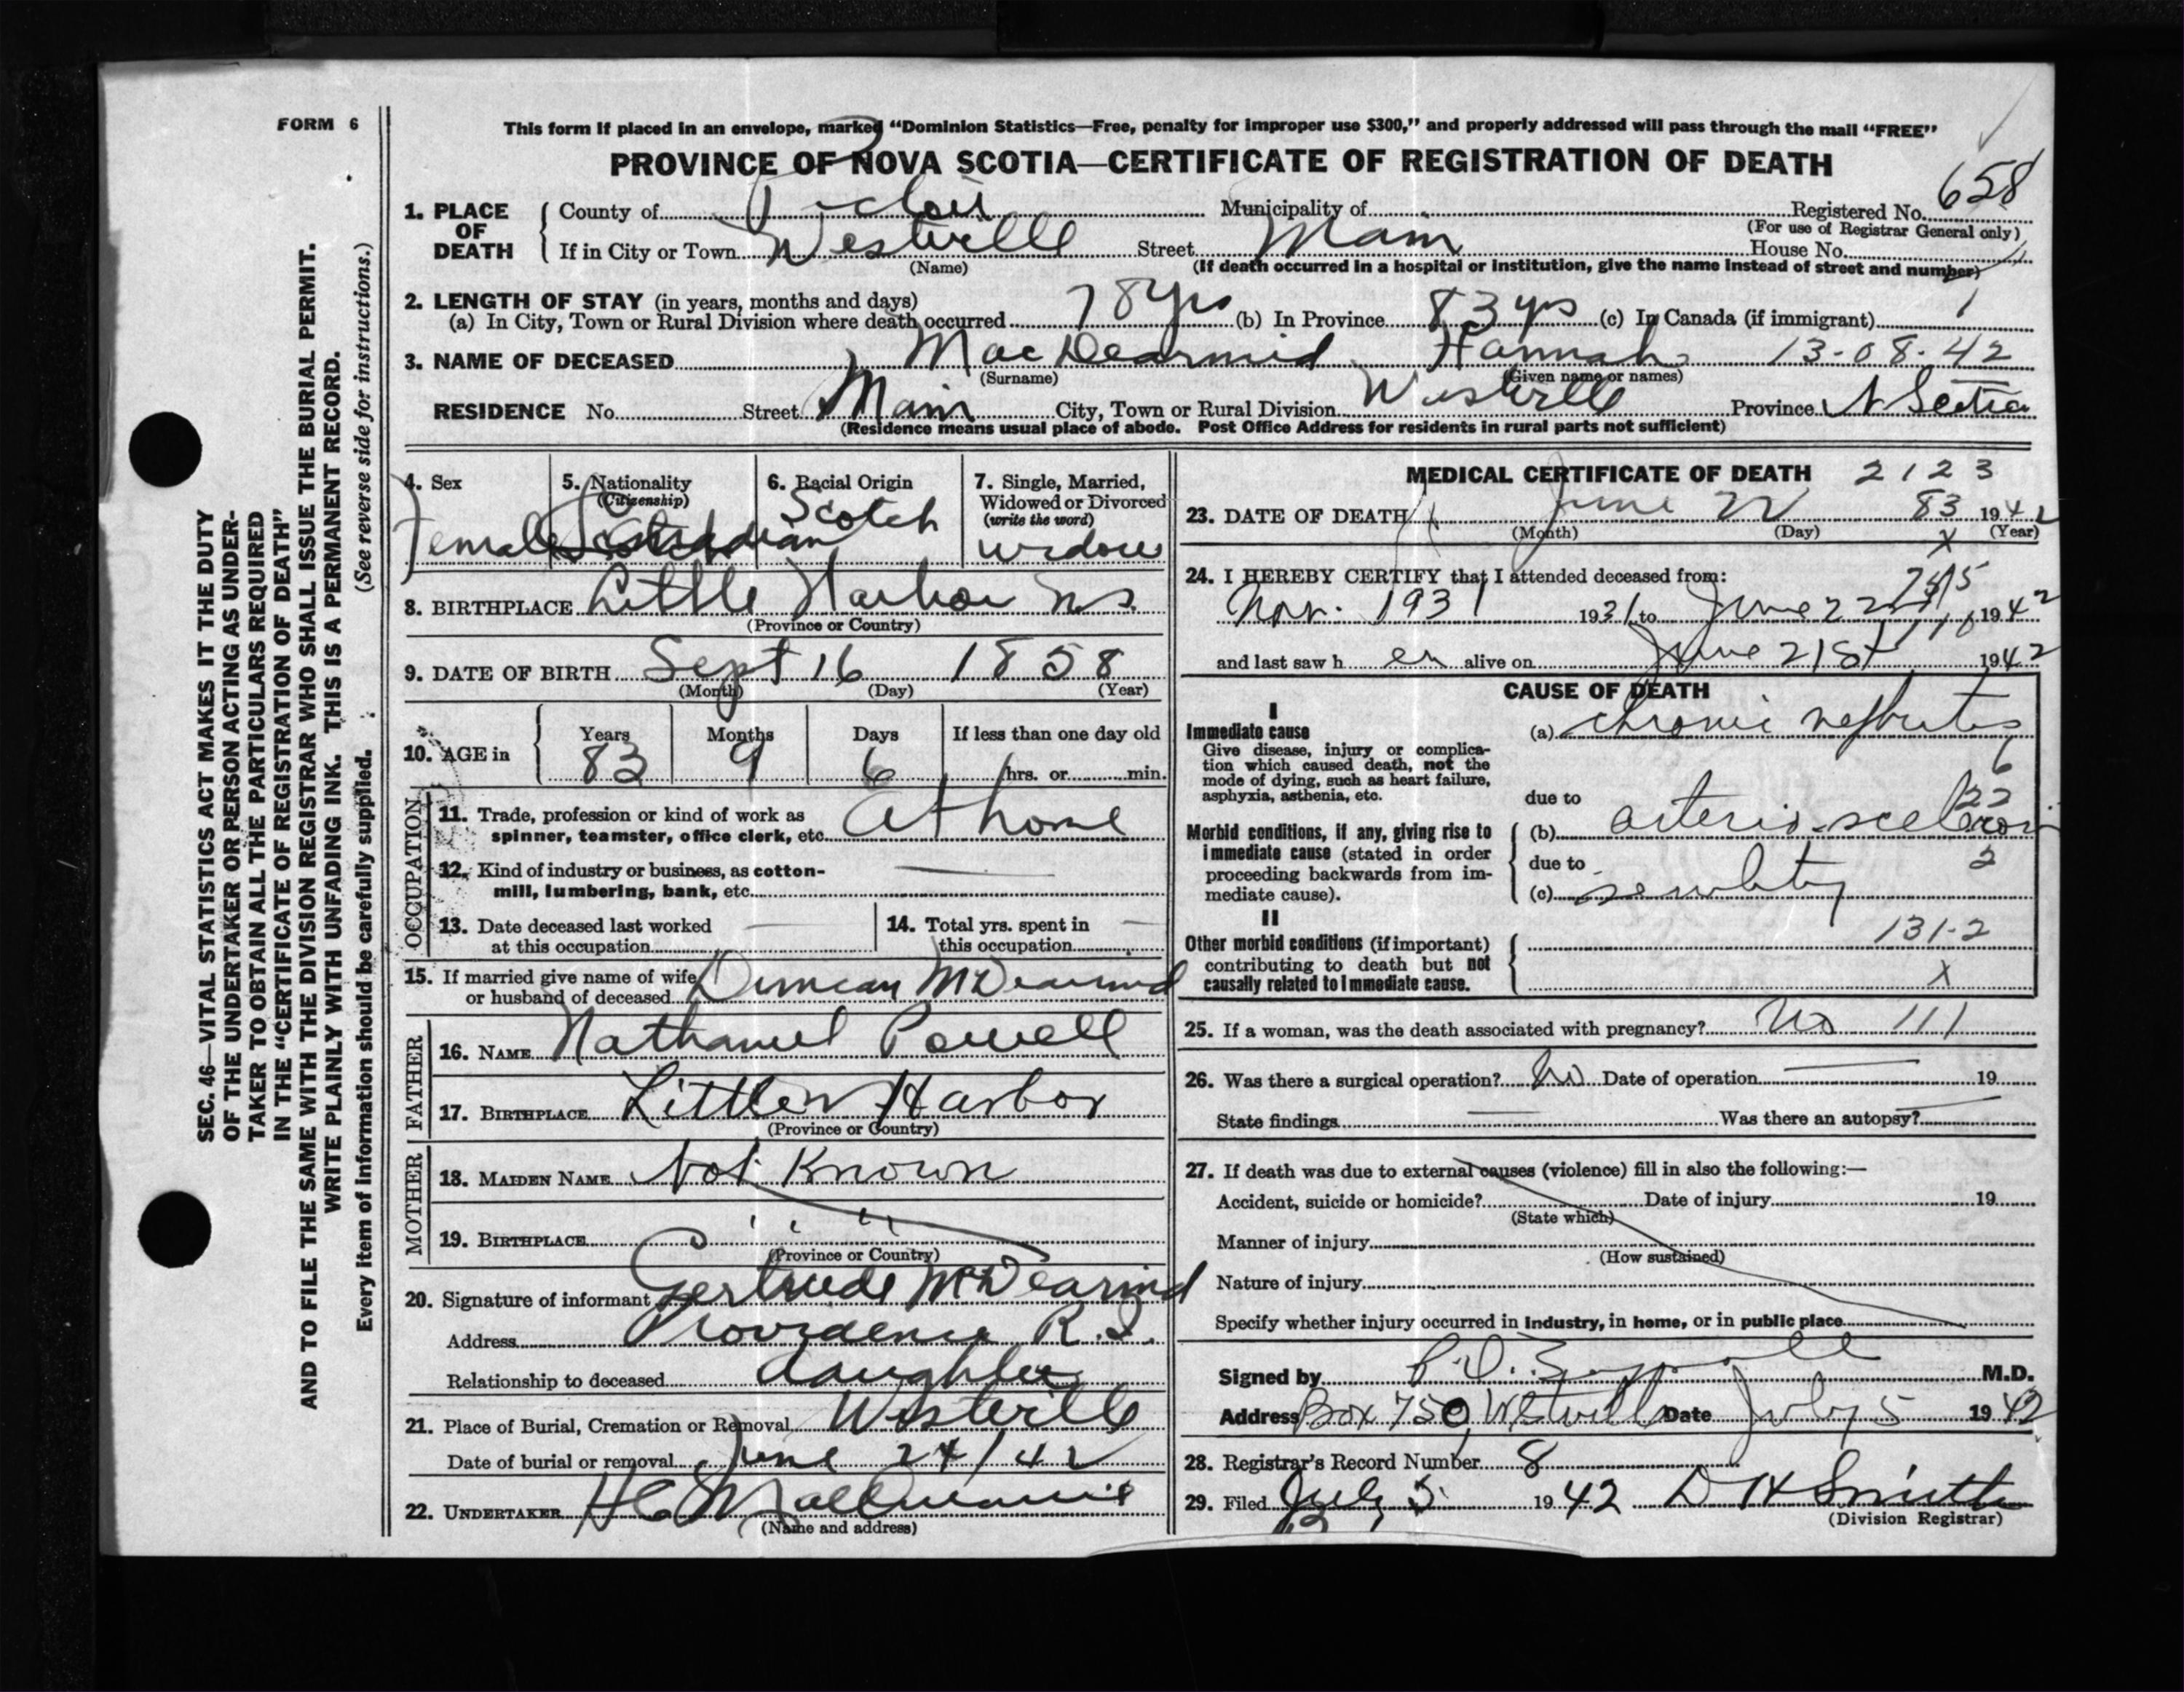 FORM 6
This form if placed in an envelope, marked "Dominion Statistics—Free, penalty for improper use $300," and properly addressed will pass through the mail "FREE"
PROVINCE OF NOVA SCOTIA—CERTIFICATE OF REGISTRATION OF DEATH
658
1. PLACE OF DEATH
County of Pictou Municipality of Registered No.
(For use of Registrar General only)
If in City or Town Westville Street Main House No.
(Name)
(If death occurred in a hospital or institution, give the name instead of street and number)
2. LENGTH OF STAY (in years, months and days)
(a) In City, Town or Rural Division where death occurred 78 yrs (b) In Province 83 yrs (c) In Canada (if immigrant) 1
3. NAME OF DECEASED MacDearmid Hannah 13-08-42
(Surname) (Given name or names)
RESIDENCE No. Street Main City, Town or Rural Division Westville Province N Scotia
(Residence means usual place of abode. Post Office Address for residents in rural parts not sufficient)
4. Sex
Female
5. Nationality
(Citizenship)
Canadian
6. Racial Origin
Scotch
7. Single, Married, Widowed or Divorced
(write the word)
widow
8. BIRTHPLACE Little Harbor N.S.
(Province or Country)
9. DATE OF BIRTH Sept 16 1858
(Month) (Day) (Year)
10. AGE in
Years Months Days If less than one day old
83 9 6 hrs. or min.
OCCUPATION
11. Trade, profession or kind of work as
spinner, teamster, office clerk, etc. At home
12. Kind of industry or business, as cotton-
mill, lumbering, bank, etc.
13. Date deceased last worked
at this occupation
14. Total yrs. spent in
this occupation
15. If married give name of wife
or husband of deceased Duncan McDearmid
FATHER
16. NAME Nathaniel Powell
17. BIRTHPLACE Little Harbor
(Province or Country)
MOTHER
18. MAIDEN NAME Not Known
19. BIRTHPLACE " "
(Province or Country)
20. Signature of informant Gertrude McDearmid
Address Providence R.I.
Relationship to deceased daughter
21. Place of Burial, Cremation or Removal Westville
Date of burial or removal June 24/42
22. UNDERTAKER
(Name and address)
MEDICAL CERTIFICATE OF DEATH 2123
23. DATE OF DEATH June 22 83 1942
(Month) (Day) (Year)
X
24. I HEREBY CERTIFY that I attended deceased from:
Nov. 1931 1931 to June 22 1942
and last saw her alive on June 21st 1942
CAUSE OF DEATH
I
Immediate cause
Give disease, injury or complica-
tion which caused death, not the
mode of dying, such as heart failure,
asphyxia, asthenia, etc.
(a) chronic nephritis
6
due to
Morbid conditions, if any, giving rise to
immediate cause (stated in order
proceeding backwards from im-
mediate cause).
(b) arterio-sclerosis
due to 2
(c) senility
II
Other morbid conditions (if important)
contributing to death but not
causally related to immediate cause.
131-2
X
25. If a woman, was the death associated with pregnancy? No 111
26. Was there a surgical operation? No Date of operation 19
State findings Was there an autopsy?
27. If death was due to external causes (violence) fill in also the following:—
Accident, suicide or homicide? Date of injury 19
(State which)
Manner of injury
(How sustained)
Nature of injury
Specify whether injury occurred in industry, in home, or in public place
Signed by M.D.
Address Box 750, Westville Date July 5 1942
28. Registrar's Record Number 8
29. Filed July 5 1942 D H Smith
(Division Registrar)
SEC. 46—VITAL STATISTICS ACT MAKES IT THE DUTY
OF THE UNDERTAKER OR PERSON ACTING AS UNDER-
TAKER TO OBTAIN ALL THE PARTICULARS REQUIRED
IN THE "CERTIFICATE OF REGISTRATION OF DEATH"
AND TO FILE THE SAME WITH THE DIVISION REGISTRAR WHO SHALL ISSUE THE BURIAL PERMIT.
WRITE PLAINLY WITH UNFADING INK. THIS IS A PERMANENT RECORD.
Every item of information should be carefully supplied. (See reverse side for instructions.)